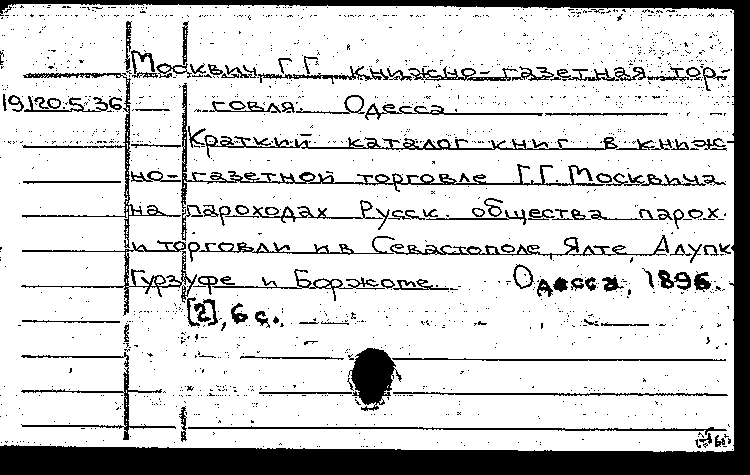 Москвич, Г.Г., книжно-газетная тор-
19.120.5.36 говля. Одесса.
Краткий каталог книг в книж-
но-газетной торговле Г.Г. Москвича
на пароходах Русск. общества парох.
и торговли и в Севастополе, Ялте, Алупке
Гурзуфе и Боржоме. Одесса, 1896.
[2], 6 с.